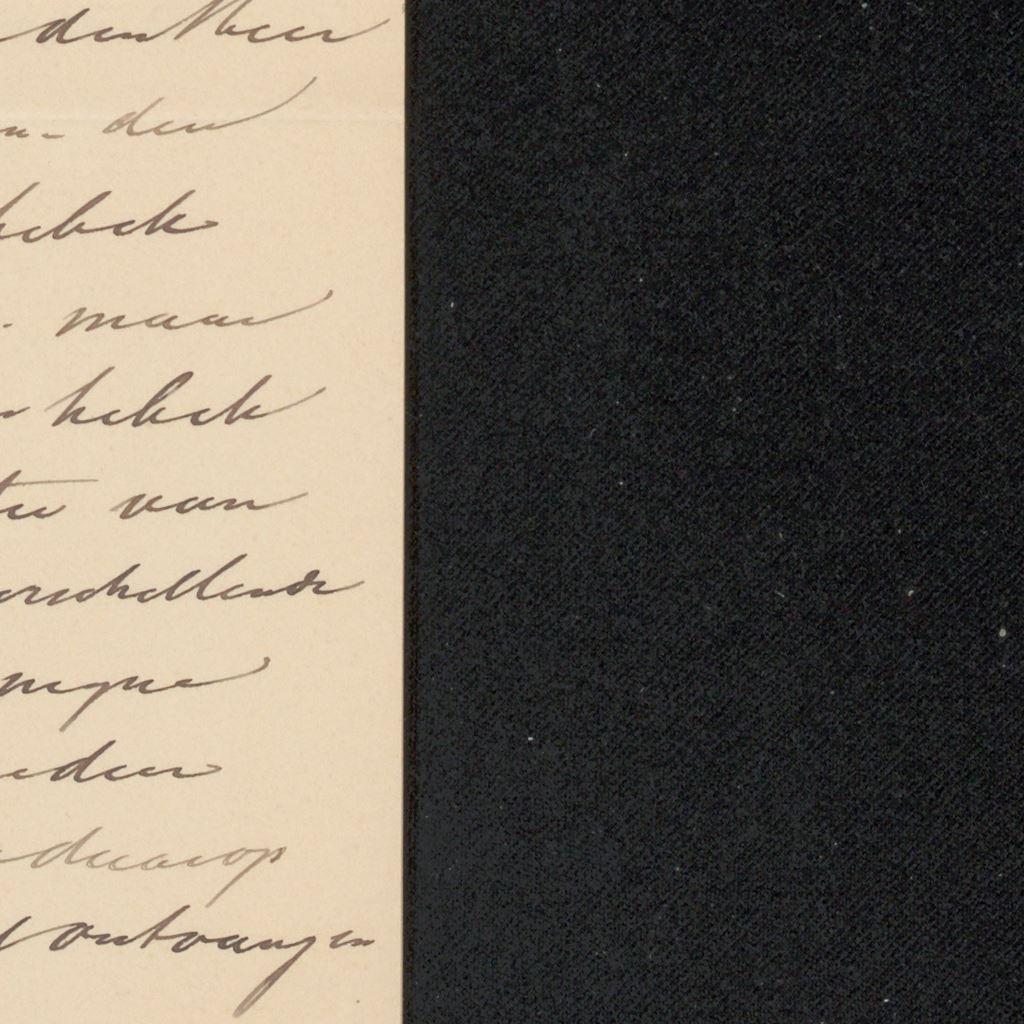 den Heer
den
hebek
maar
hebek
van
verschillende
mijne
eden
daarop
ontvangen